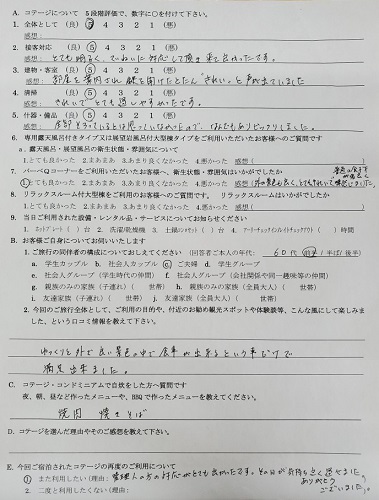 A. コテージについて 5段階評価で、数字に○を付けて下さい。
1. 全体として (良) 5 4 3 2 1 (悪)
感想:
2. 接客対応 (良) 5 4 3 2 1 (悪)
感想: とても明るく、ていねいに対応して頂き来て良かったです。
3. 建物・客室 (良) 5 4 3 2 1 (悪)
感想: 部屋を案内され 扉を開けたとたん"きれい"と声が出ていました
4. 清掃 (良) 5 4 3 2 1 (悪)
感想: きれいで とても過しやすかったです。
5. 什器・備品 (良) 5 4 3 2 1 (悪)
感想: 全部そろっているとは思っていなかったので、なんでもありびっくりしました。
6. 専用露天風呂付きタイプ又は展望岩風呂付大型棟タイプをご利用いただいたお客様へのご質問です
a. 露天風呂・展望風呂の衛生状態・雰囲気について
1.とても良かった 2.まあまあ 3.あまり良くなかった 4.悪かった 感想(
7. バーベQコーナーをご利用いただいたお客様へ、衛生状態・雰囲気はいかがでしたか
1.とても良かった 2.まあまあ 3.あまり良くなかった 4.悪かった 感想(
8. リラックスルーム付大型棟をご利用のお客様へのご質問です。 リラックスルームはいかがでしたか
1.とても良かった 2.まあまあ 3.あまり良くなかった 4.悪かった 感想(
9. 当日ご利用された設備・レンタル品・サービスについてお知らせください
1. ホットプレート( )台 2. 洗濯/乾燥機 3. 土鍋のセット( )台 4. アーリーチェックイン/レイトチェックアウト( )時間
B. お客様ご自身についてお伺いいたします
1. ご旅行の同伴者の構成についておしえてください (回答者ご本人の年代: 60代 前半/半ば/後半)
a. 学生カップル b. 社会人カップル c. ご夫婦 d. 学生グループ
e. 社会人グループ(学生時代の仲間) f. 社会人グループ(会社関係や同一趣味等の仲間)
g. 親族のみの家族(子連れ)( 世帯) h. 親族のみの家族(全員大人)( 世帯)
i. 友達家族(子連れ)( 世帯) j. 友達家族(全員大人)( 世帯)
2. 今回のご旅行全体として、ご利用の目的や、付近のお勧め観光スポットや体験談等、こんな風にして楽しみました、という口コミ情報を教えて下さい。
ゆっくりと外で良い景色の中で食事が出来るという事だけで
満足出来ました。
C. コテージ・コンドミニアムで自炊をした方へ質問です
夜、朝、昼など作ったメニューや、BBQで作ったメニューを教えてください。
焼肉 焼きそば
D. コテージを選んだ理由やそのご感想を教えて下さい。
E. 今回ご宿泊されたコテージの再度のご利用について
1 また利用したい(理由: 管理人の方の対応がとても良かったです。その分が気持ち良く過せました。
ありがとう
ございました。
2. 二度と利用したくない(理由: